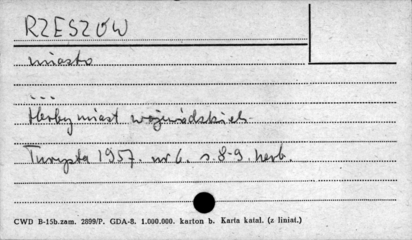 RZESZÓW
miasto
...
Herby miast wojewódzkich.
Turysta 1957. nr 6. s. 8-9. herb.
CWD B-15b.zam. 2899/P. GDA-8. 1.000.000. karton b. Karta katal. (z liniat.)